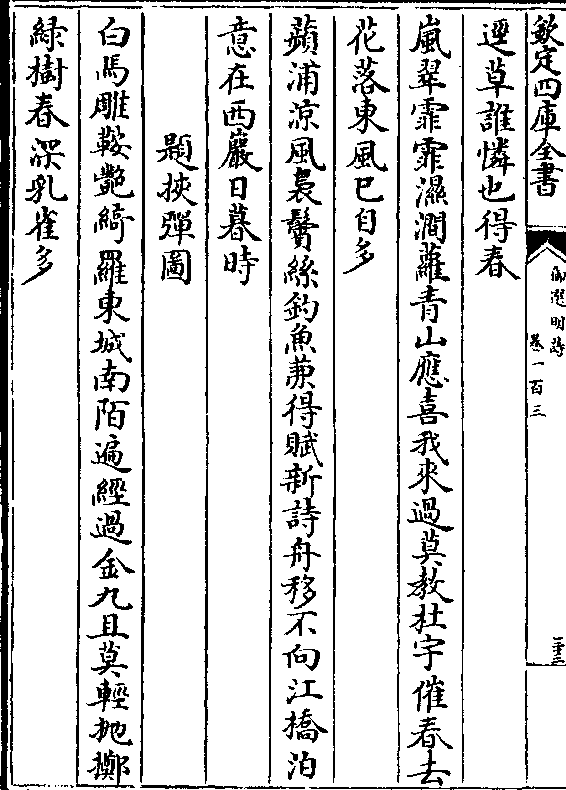 欽定四庫全書
御選明詩
卷一百三
遝草誰憐也得春
嵐翠霏霏濕澗蘿青山應喜我來過莫教杜宇催春去
花落東風已自多
蘋浦涼風裊鬢絲釣魚兼得賦新詩舟移不向江橋泊
意在西巖日暮時
題挾彈圖
白馬雕鞍艷綺羅東城南陌遍經過金丸且莫輕抛擲
緑樹春深乳雀多